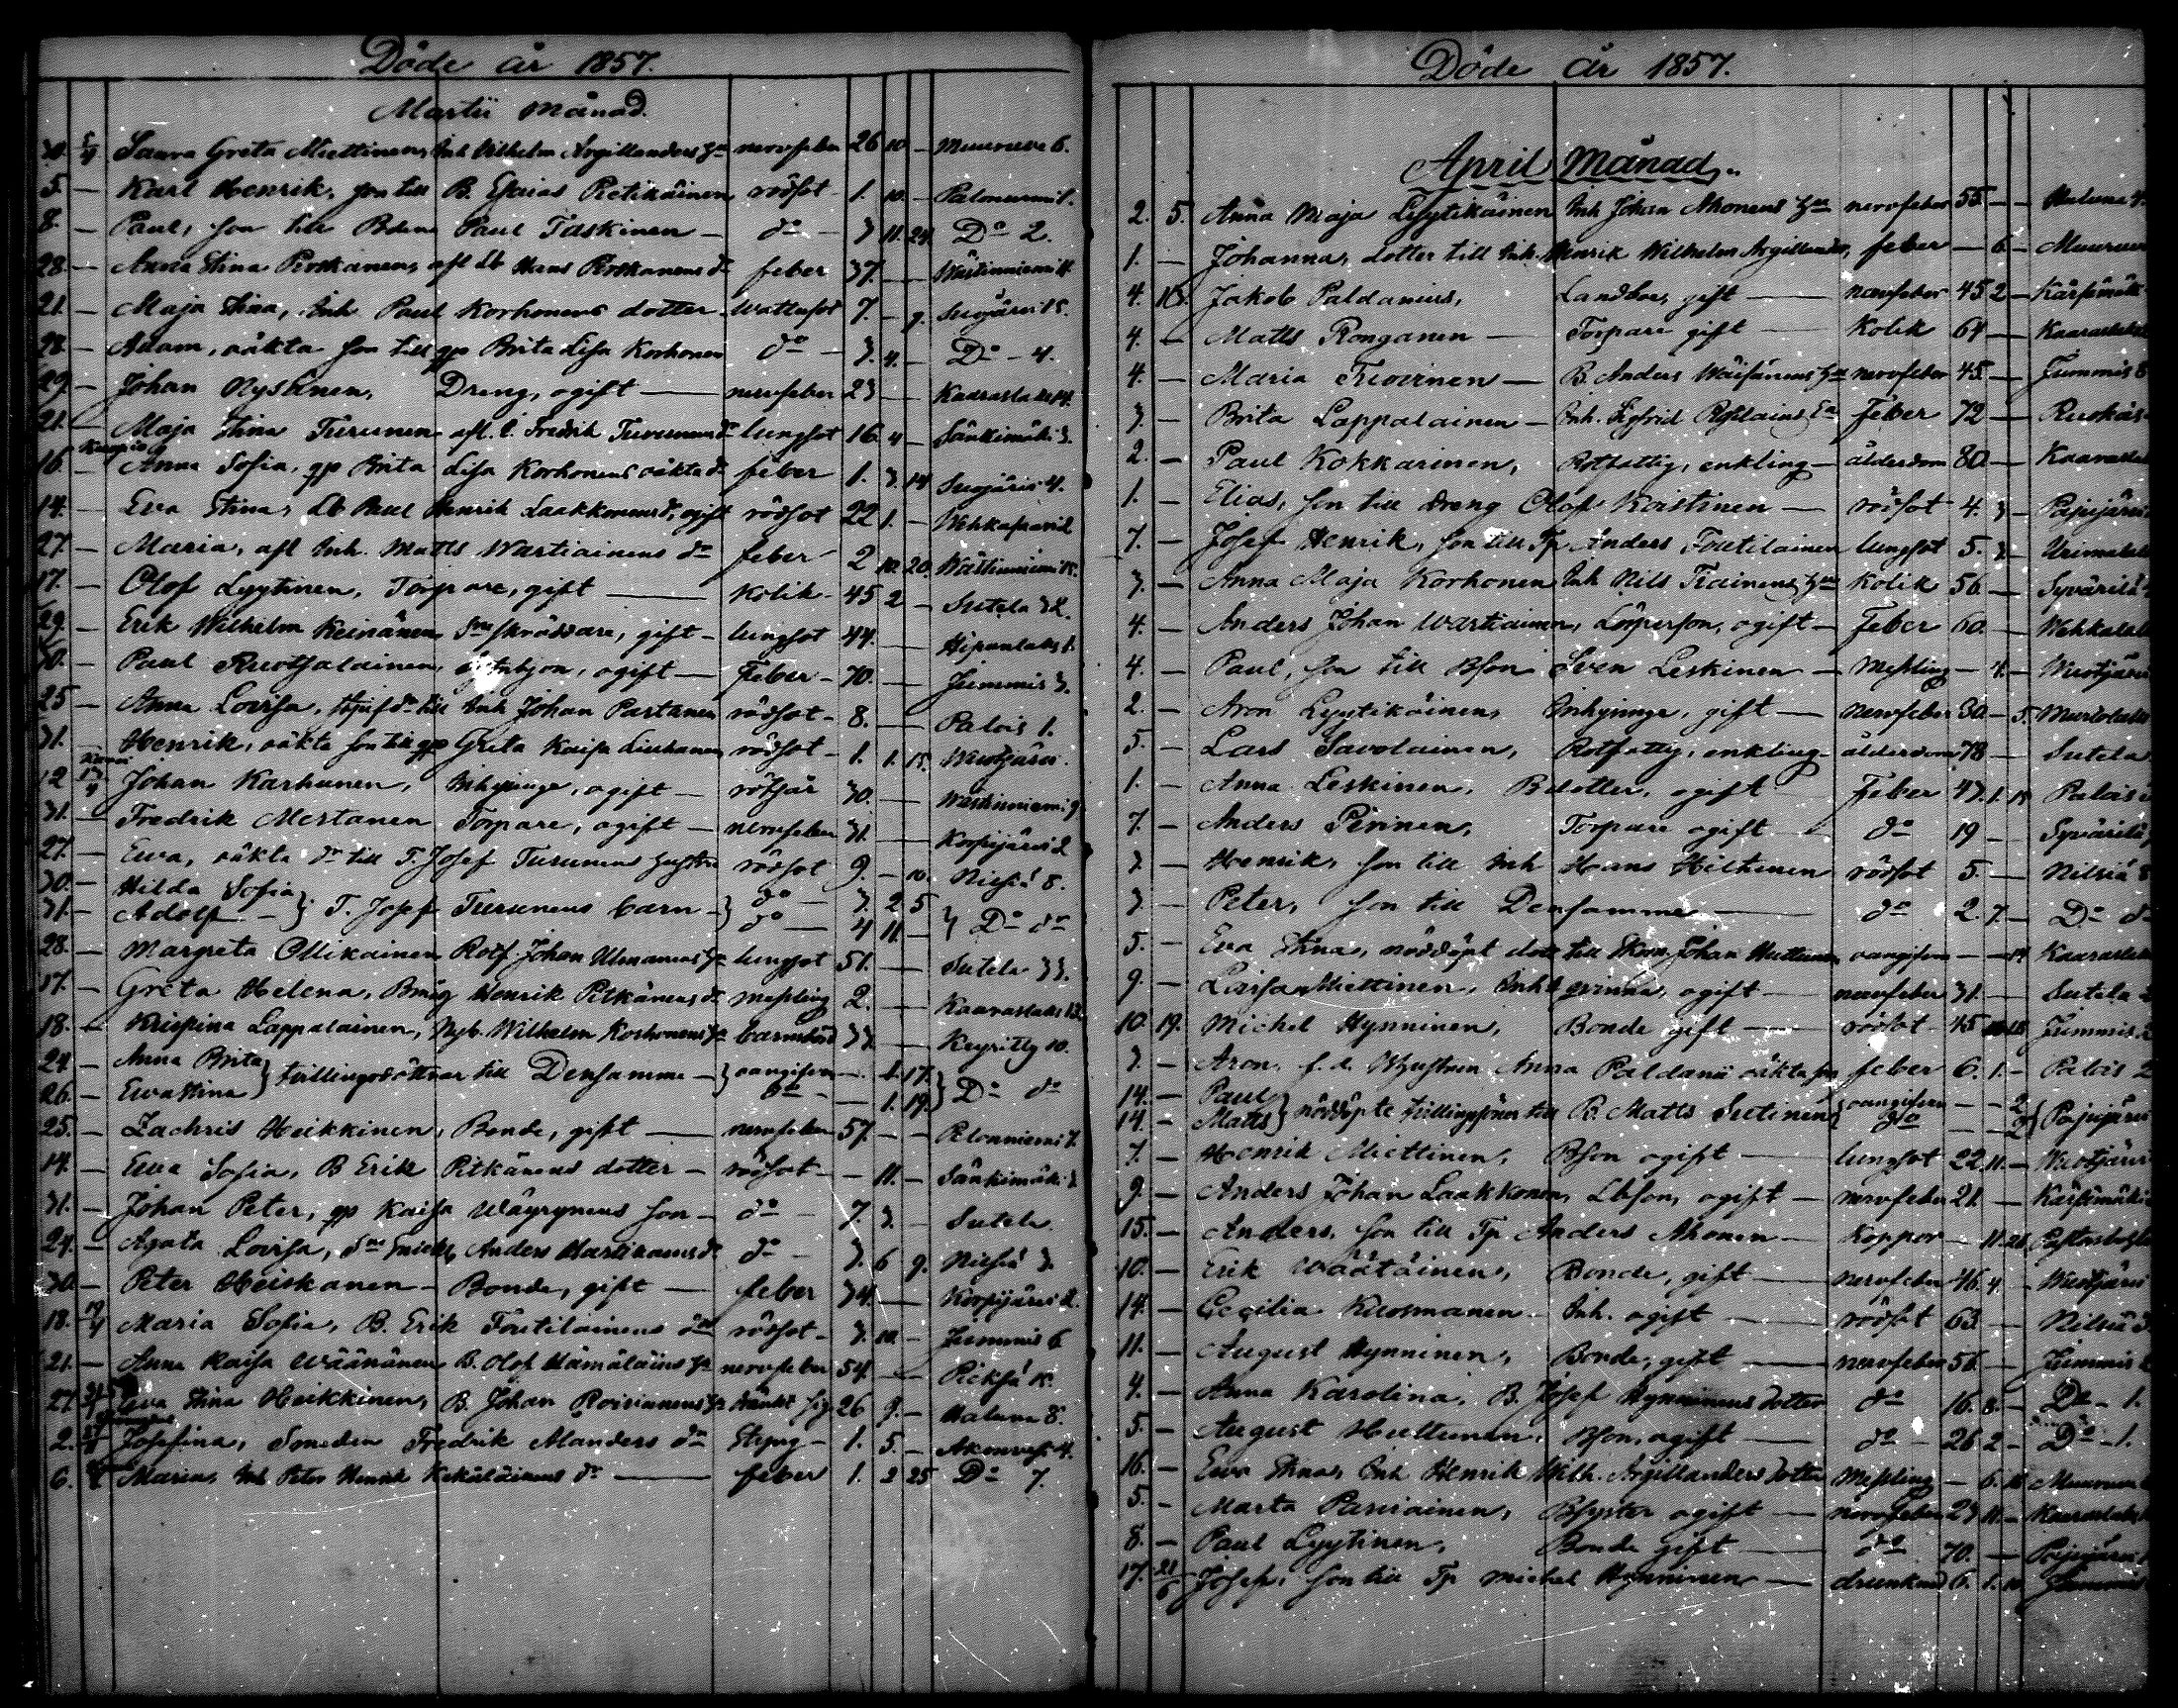 Döde år 1857.
Martii Månad.
30. 5/4 Saara Greta Miettinen, Inh Wilhelm Argillanders hu nervfeber 26 10 — Muuruvesi 6.
5. — Karl Henrik, son till B. Esaias Pietikäinen rödsot 1. 10. — Palonurmi 1.
8. — Paul, son till Bden Paul Taskinen — do — 3 11. 24. Do 2.
28. — Anna Stina Roskanen, afl Lb Hans Roskanens dr feber 37. — —
21. — Maja Stina, Inh Paul Korhonens dotter wattusot 7. — 9. Suojärvi 15.
28. — Adam, oäkta son till gp Brita Lisa Korhonen do — 3. 4. — Do — 4.
29. — Johan Nyssönen, Dreng, ogift — nervfeber 23 — — Kaaraslaks 14.
21. — Maja Stina Turunen afl. l. Fredrik Turunens dr lungsot 16. 4 — Sänkimäki 3.
16. — Anna Sofia, gp Brita Lisa Korhonens oäkta dr feber 1. 3. 14 Suojärvi 4.
14. — Eva Stina, Lb Paul Henrik Laakkonens dr, ogift rödsot 22 1. —
27. — Maria, afl Inh. Matts Wartiainens dr feber 2 10. 20. Wästinniemi 15.
17. — Olof Lyytinen, Torpare, gift — Kolik 45 2 — Sutela 32.
29. — Erik Wilhelm Keinänen Sne skräddare, gift — lungsot 44. — — Hipanlaks 1.
30. — Paul Ruotsalainen, ogift — Feber — 70. — — Jummis 3.
25 — Anna Lovisa, till Inh Johan Partanen rödsot — 8. — — Palois 1.
31. — Henrik, oäkta son till gp Greta Kaisa Liuhanen rödsot — 1. 1. 15. Wuotjärvi.
12 13/4 Johan Karhunen, Inhysinge, ogift — rötsår 30. — — Wästinniemi 9.
31. — Fredrik Mertanen Torpare, ogift — nervfeber 31. — — Korpijärvi 2
27. — Ewa, oäkta dr till T. Josef Turunens hustru rödsot 9. — 10. Nilsiä 8.
30. — Hilda Sofia } T. Josef Turunens barn } do — 3 2 5
31. — Adolf — do — 4 11. — } Do do
28. — Margreta Ollikainen Rotf. Johan hu lungsot 51. — — Sutela 33.
17. — Greta Helena, Bmåg Henrik Pitkänens dr messling 2. — — Kaaraslaks 13.
18. — Kristina Lappalainen, Nyb. Wilhelm Korhonens hu barnsbörd 33. — — Keyritty 10.
24. — Anna Brita } tvillingsdöttrar till Densamma — } oangifven — 1. 17.
26. — Ewa Stina do — — 1. 19. } Do do
25. — Zachris Heikkinen, Bonde, gift — nervfeber 57. — — Pelonniemi 7.
14. — Ewa Sofia, B Erik Pitkänens dotter — rödsot — — 11. — Sänkimäki 3.
31. — Johan Peter, gp Kaisa Wäyrynens son — do — 7. 3. — Sutela
24. — Agata Lovisa, Anders Martikainens dr do — 3. 6 9. Nilsiä 3.
30. — Peter Heiskanen — Bonde, gift — feber 34. — — Korpijärvi 2.
18. 19/4 Maria Sofia, B. Erik Toutilainens dr rödsot — 3. 10. — Jummis 6
21. — Anna Kaisa Wäänänen B. Olof Hämäläins hu nervfeber 54. — — Pieksä 15.
27. Eva Stina Heikkinen, B. Johan Roivianens hu 26 9. — Haluna 8.
2. Josefina, Smeden Fredrik Alanders dr Styng — 1. 5. — Akonvesi 4.
6. Maria, Inh Peter Henrik Kekäläinens dr — feber 1. 2 25 Do 7.
Döde år 1857.
April Månad.
2. 5. Anna Maja Lyytikäinen Inh Johan Ahonens hu nervfeber 55 — — Haluna 4.
1. — Johanna, dotter till Inh. Henrik Wilhelm Argillander, feber — 6 — Muuruve
4. 10. Jakob Paldanius, Landboe, gift — nervfeber 45 2 — Kärsämäk
4. — Matts Ronganen — Torpare gift — Kolik 64 — Kaaraslaks
4. — Maria Tuovinen — B. Anders Wäisänens hu nervfeber 45. — Jummis 8
3. — Brita Lappalainen — Inh. Sigfrid feber 72 —
2. — Paul Kokkarinen, Rotfattig, enkling — ålderdom 80. — Kaaraslak
1. — Elias, son till dreng Olof Koistinen — rödsot 4. 3 — Pajujärvi
7. — Josef Henrik, son till Tp Anders Toutilainen lungsot 5. 3 —
3. — Anna Maja Korhonen Inh Nils Tiainens hu Kolik 56 — Syvärilä
4. — Anders Johan Wartiainen, Lösperson, ogift — Feber 60. —
4. — Paul, son till Bson Sven Leskinen — Messling — 4. — Wuotjärvi
2. — Aron Lyytikäinen, Inhysinge, gift — nervfeber 30. — 5.
5. — Lars Savolainen, Rotfattig, enkling — ålderdom 78 — Sutela
1. — Anna Leskinen, Bdotter, ogift Feber 43. 1. 15 Palois
7. — Anders Pirinen, Torpare ogift — do 19 — Syvärilä
3. — Henrik, son till Inh Hans Hiltunen rödsot 5. — Nilsiä 8
3 — Peter, son till Densamme — do 2. 7. — Do do
5. — Eva Stina, nöddöpt dott till Skom. Johan Huttunen oangifven — — 14 Kaaraslaks
9. — Lovisa Miettinen, Inhqvinna, ogift — nervfeber 31. — Sutela
10. 19. Michel Hynninen, Bonde gift — rödsot 45 Jummis
3. — Aron, f. d. Anna Paldanii oäkta son feber 6. 1. — Palois 2
14. — Paul } nöddöpte tvillingsöner till B. Matts Sutinen } oangifven — — 2
14. — Matts do — — 2 } Pajujärvi
7. — Henrik Miettinen, Bson ogift — lungsot 22 11. — Wuotjärvi
9. — Anders Johan Laakkonen, Lbson, ogift — nervfeber 21. — Kärsämäki
15. — Anders, son till Tp Anders Ahonen — Koppor — 11. 21.
10. — Erik Wäätäinen, Bonde, gift — nervfeber 46. 4 — Wuotjärvi
14. — Cecilia Kuosmanen — Inh. ogift — rödsot 63. — Nilsiä 3
11. — August Hynninen, Bonde, gift — nervfeber 56. — Jummis
4. — Anna Karolina, B. Josef Hynninens dotter do 16. 8. — Do — 1.
5. — August Huttunen, Bson, ogift — do — 26 2 — Do — 1.
16. — Ewa Stina, Inh Henrik Wilh. Argillanders dotter Messling — 6. 10 Muuruve
5. — Marta Parviainen, Bsyster ogift — nervfeber 23 11. — Kaaraslaks
8. — Paul Lyytinen, Bonde gift — do 70. — Pajujärvi
17. 21/6 Josef, son till Tp Michel Hynninen — drunknad 6. 1. 10 Jummis